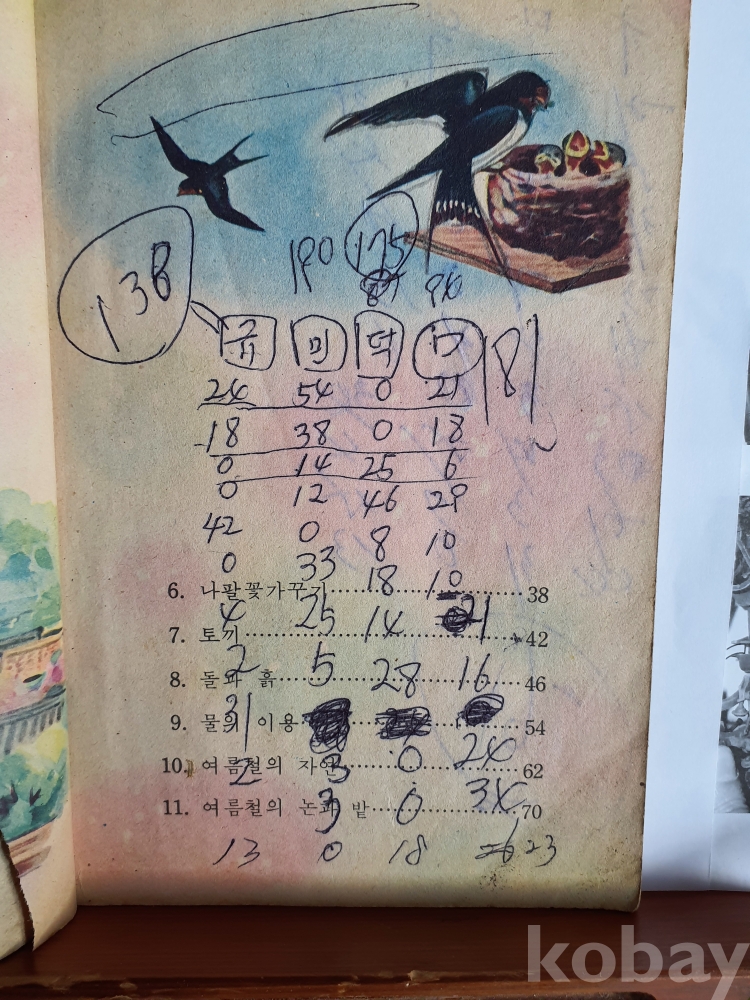 190 175
138 87 90
규 민 덕 ㅁ 181
24 54 0 21
18 38 0 18
0 14 25 6
0 12 46 29
42 0 8 10
0 33 18 10
6. 나팔꽃가꾸기 38
4 25 14 21
7. 토끼 42
2 5 28 16
8. 돌과 흙 46
31
9. 물의 이용 54
2 3 0 24
10. 여름철의 자연 62
3 0 34
11. 여름철의 논과 밭 70
13 0 18 23
kobay